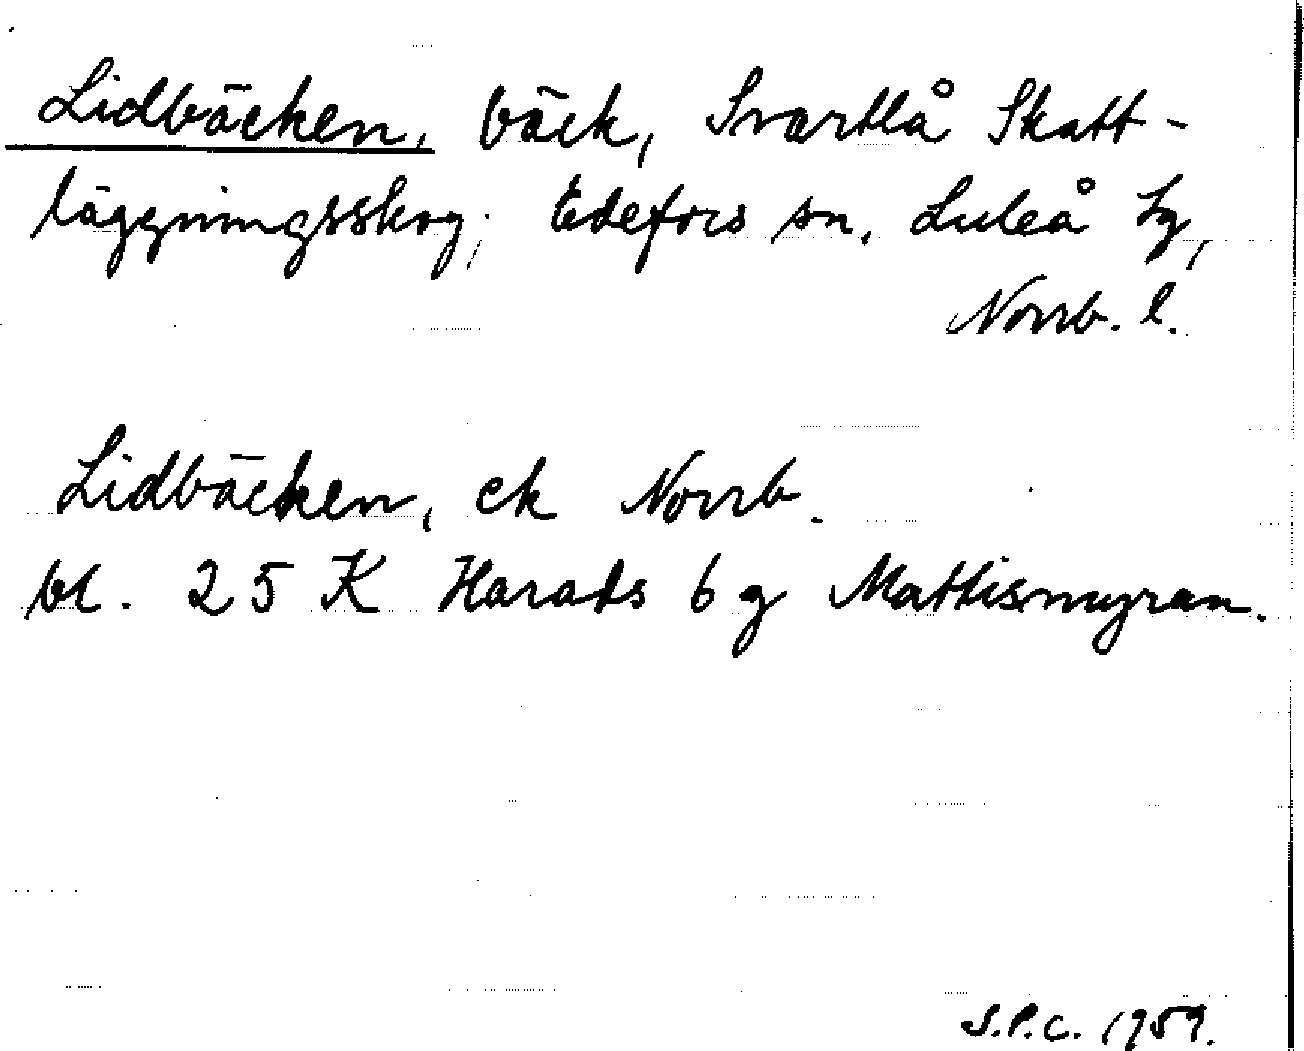 Lidbäcken, bäck, Svartlå Skatt-
läggningsskog, Edefors sn, Luleå tg,
Norrb. l.
Lidbäcken, ek Norrb.
bl. 25 K Harads 6 g Mattismyran.
S.P.C. 1959.